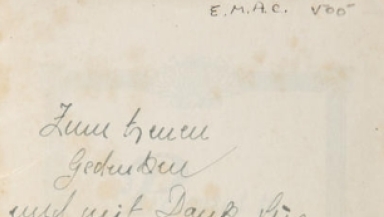 E.M.A.C. V005
Zum treuen
Gedenken
und mit Dank für